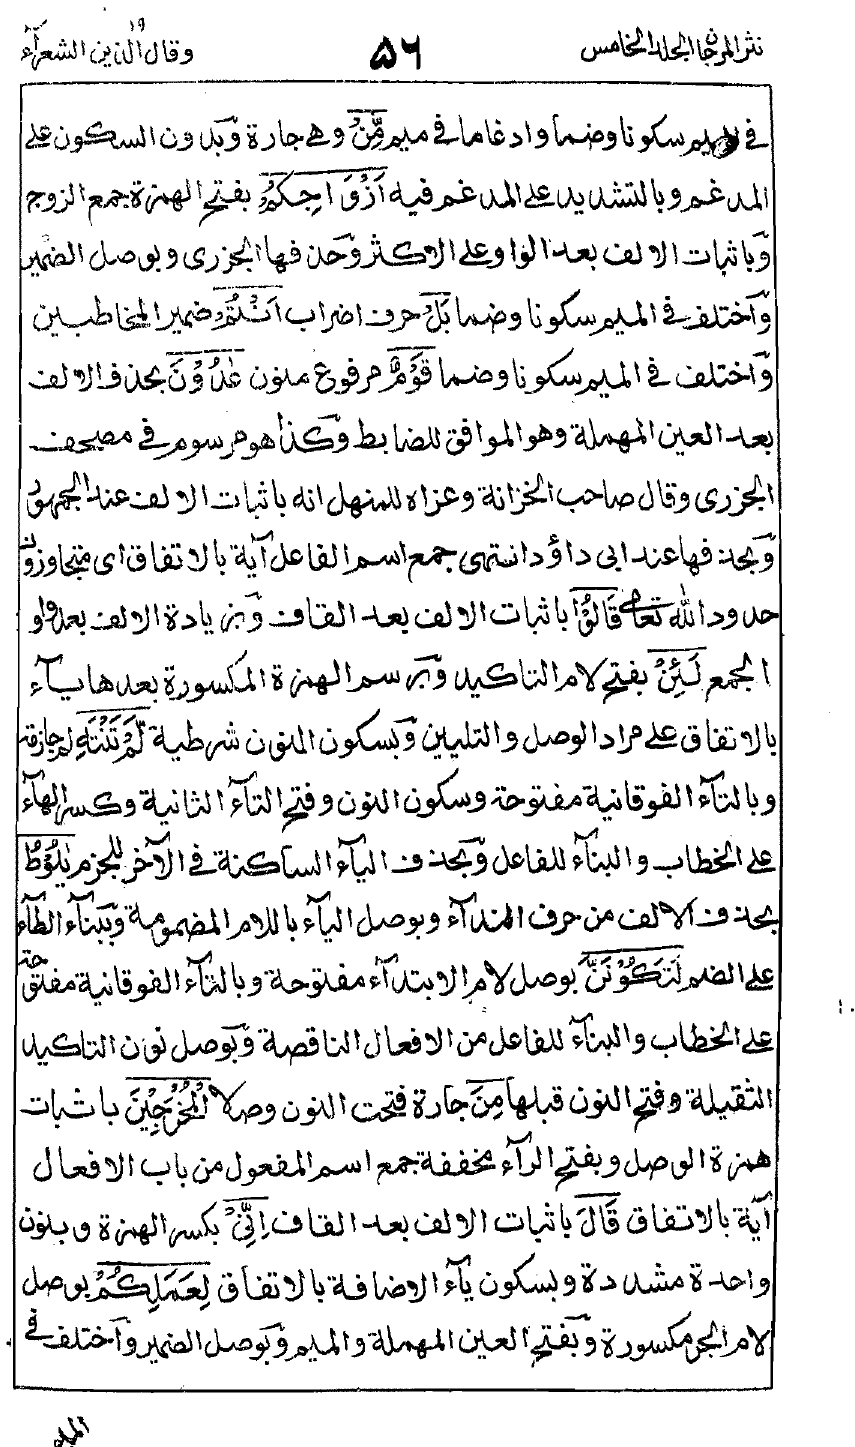 نثر المرجان المجلد الخامس
۵۶
وقال الذين ۱۹ الشعرآء
في الميم سكونا وضما وادغاما في ميم مِّنْ وهي جارة وبدون السكون على
المدغم وبالتشديد على المدغم فيه اَزْوَاجِكُمْ بفتح الهمزة جمع الزوج
وباثبات الالف بعد الواو على الاكثر وحذفها الجزرى وبوصل الضمير
واختلف في الميم سكونا وضما بَلْ حرف اضراب اَنْتُمْ ضمير المخاطبين
واختلف في الميم سكونا وضما قَوْمٌ مرفوع منون عٰدُوْنَ بحذف الالف
بعد العين المهملة وهو الموافق للضابط وكذا هو مرسوم في مصحف
الجزرى وقال صاحب الخزانة وعزاه للمنهل انه باثبات الالف عند الجمهور
وبحذفها عند ابى داؤد انتهى جمع اسم الفاعل آية بالاتفاق اى متجاوزون
حدود الله تعالى قَالُوْا باثبات الالف بعد القاف وبزيادة الالف بعد واو
الجمع لَئِنْ بفتح لام التاكيد وبرسم الهمزة المكسورة بعدها يآء
بالاتفاق على مراد الوصل والتليين وبسكون النون شرطية لَّمْ تَنْتَهِ لم جازمة
وبالتآء الفوقانية مفتوحة وسكون النون وفتح التآء الثانية وكسر الهآء
على الخطاب والبنآء للفاعل وبحذف اليآء الساكنة في الآخر للجزم يٰلُوْطُ
بحذف الالف من حرف الندآء وبوصل اليآء باللام المضمومة وببنآء الطآء
على الضم لَتَكُوْنَنَّ بوصل لام الابتدآء مفتوحة وبالتآء الفوقانية مفتوحة
على الخطاب والبنآء للفاعل من الافعال الناقصة وبوصل نون التاكيد
الثقيلة وفتح النون قبلها مِنَ جارة فتحت النون وصلا الْمُخْرَجِيْنَ باثبات
همزة الوصل وبفتح الرآء مخففة جمع اسم المفعول من باب الافعال
آية بالاتفاق قَالَ باثبات الالف بعد القاف اِنِّيْ بكسر الهمزة وبنون
واحدة مشددة وبسكون يآء الاضافة بالاتفاق لِعَمَلِكُمْ بوصل
لام الجر مكسورة وبفتح العين المهملة والميم وبوصل الضمير واختلف في